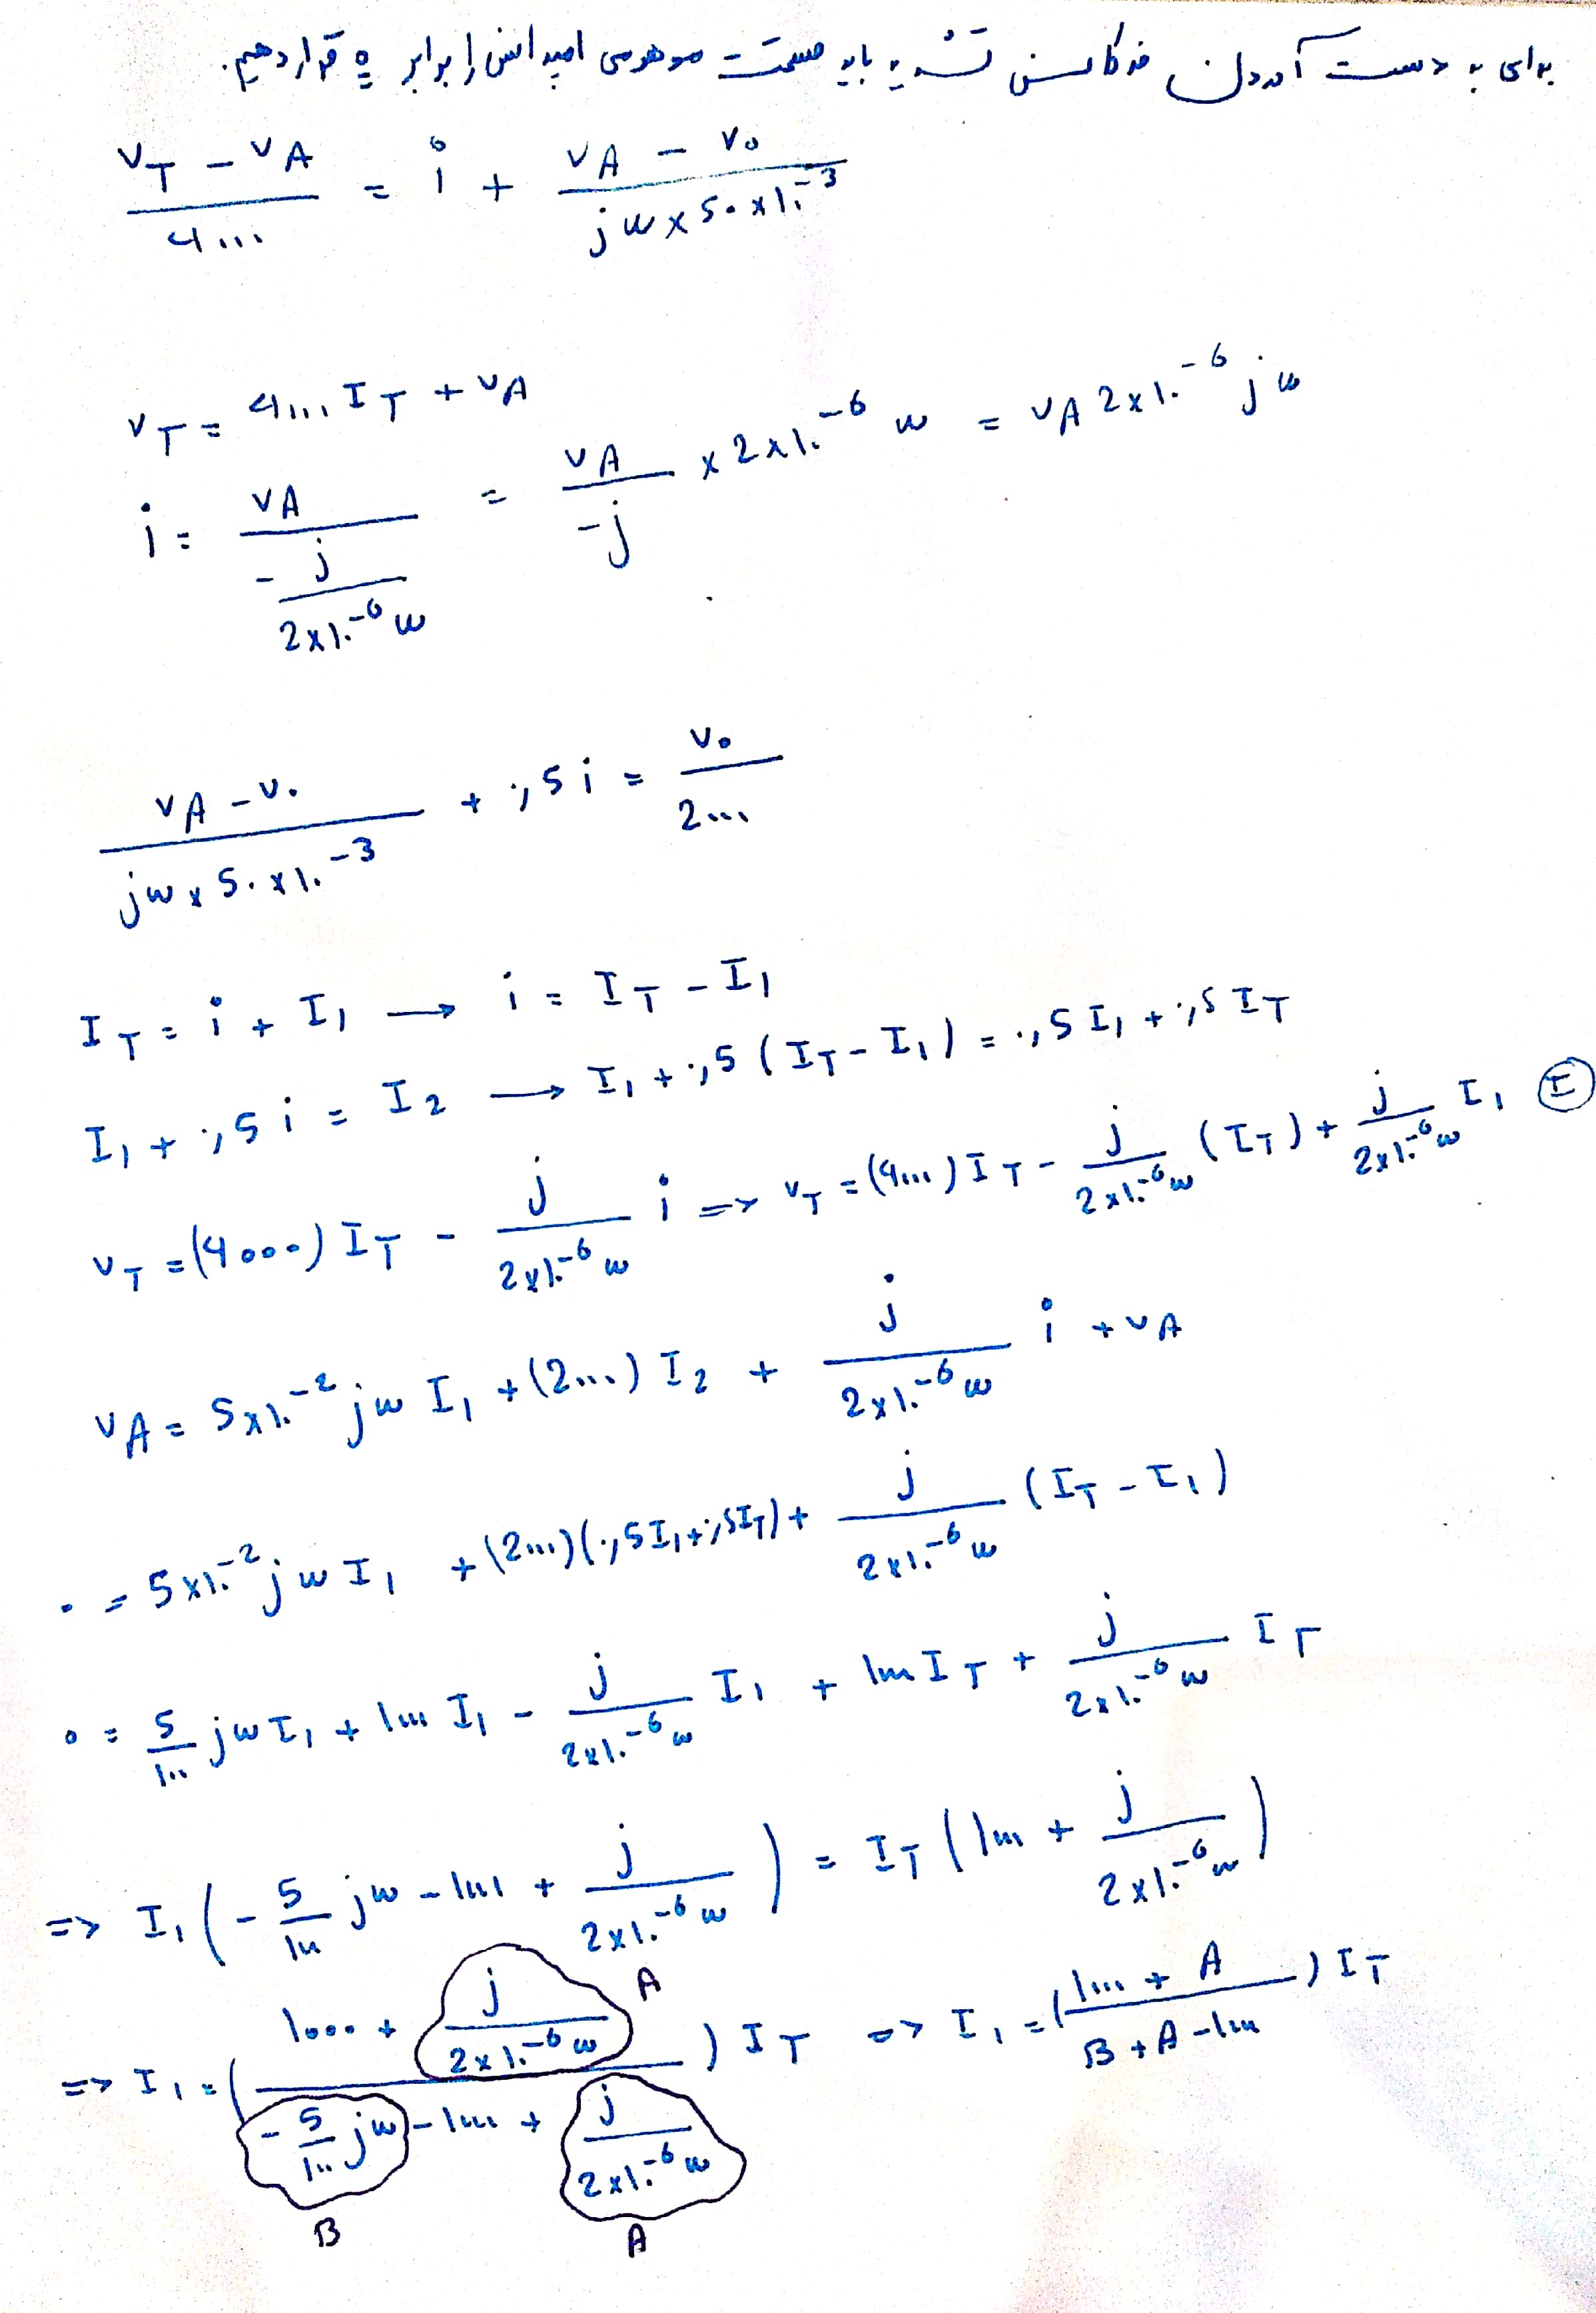 برای به دست آوردن فرکانس تشدید باید قسمت موهومی امپدانس را برابر ه قرار دهیم.
(v_T - v_A)/4000 = i + (v_A - v_0)/(jω × 50 × 10^-3)
v_T = 4000 I_T + v_A
i = v_A/(-j/(2×10^-6 ω)) = v_A/(-j) × 2×10^-6 ω = v_A 2×10^-6 jω
(v_A - v_0)/(jω × 50 × 10^-3) + 0,5 i = v_0/2000
I_T = i + I_1 → i = I_T - I_1
I_1 + 0,5 i = I_2 → I_1 + 0,5 (I_T - I_1) = 0,5 I_1 + 0,5 I_T
v_T = (4000) I_T - j/(2×10^-6 ω) i => v_T = (4000) I_T - j/(2×10^-6 ω) (I_T) + j/(2×10^-6 ω) I_1 Ⓘ
v_A = 5×10^-2 jω I_1 + (2000) I_2 + j/(2×10^-6 ω) i + v_A
0 = 5×10^-2 jω I_1 + (2000)(0,5 I_1 + 0,5 I_T) + j/(2×10^-6 ω) (I_T - I_1)
0 = 5/100 jω I_1 + 1000 I_1 - j/(2×10^-6 ω) I_1 + 1000 I_T + j/(2×10^-6 ω) I_T
=> I_1 (- 5/100 jω - 1000 + j/(2×10^-6 ω)) = I_T (1000 + j/(2×10^-6 ω))
=> I_1 = ((1000 + j/(2×10^-6 ω))/(- 5/100 jω - 1000 + j/(2×10^-6 ω))) I_T => I_1 = ((1000 + A)/(B + A - 1000)) I_T
A
B
A